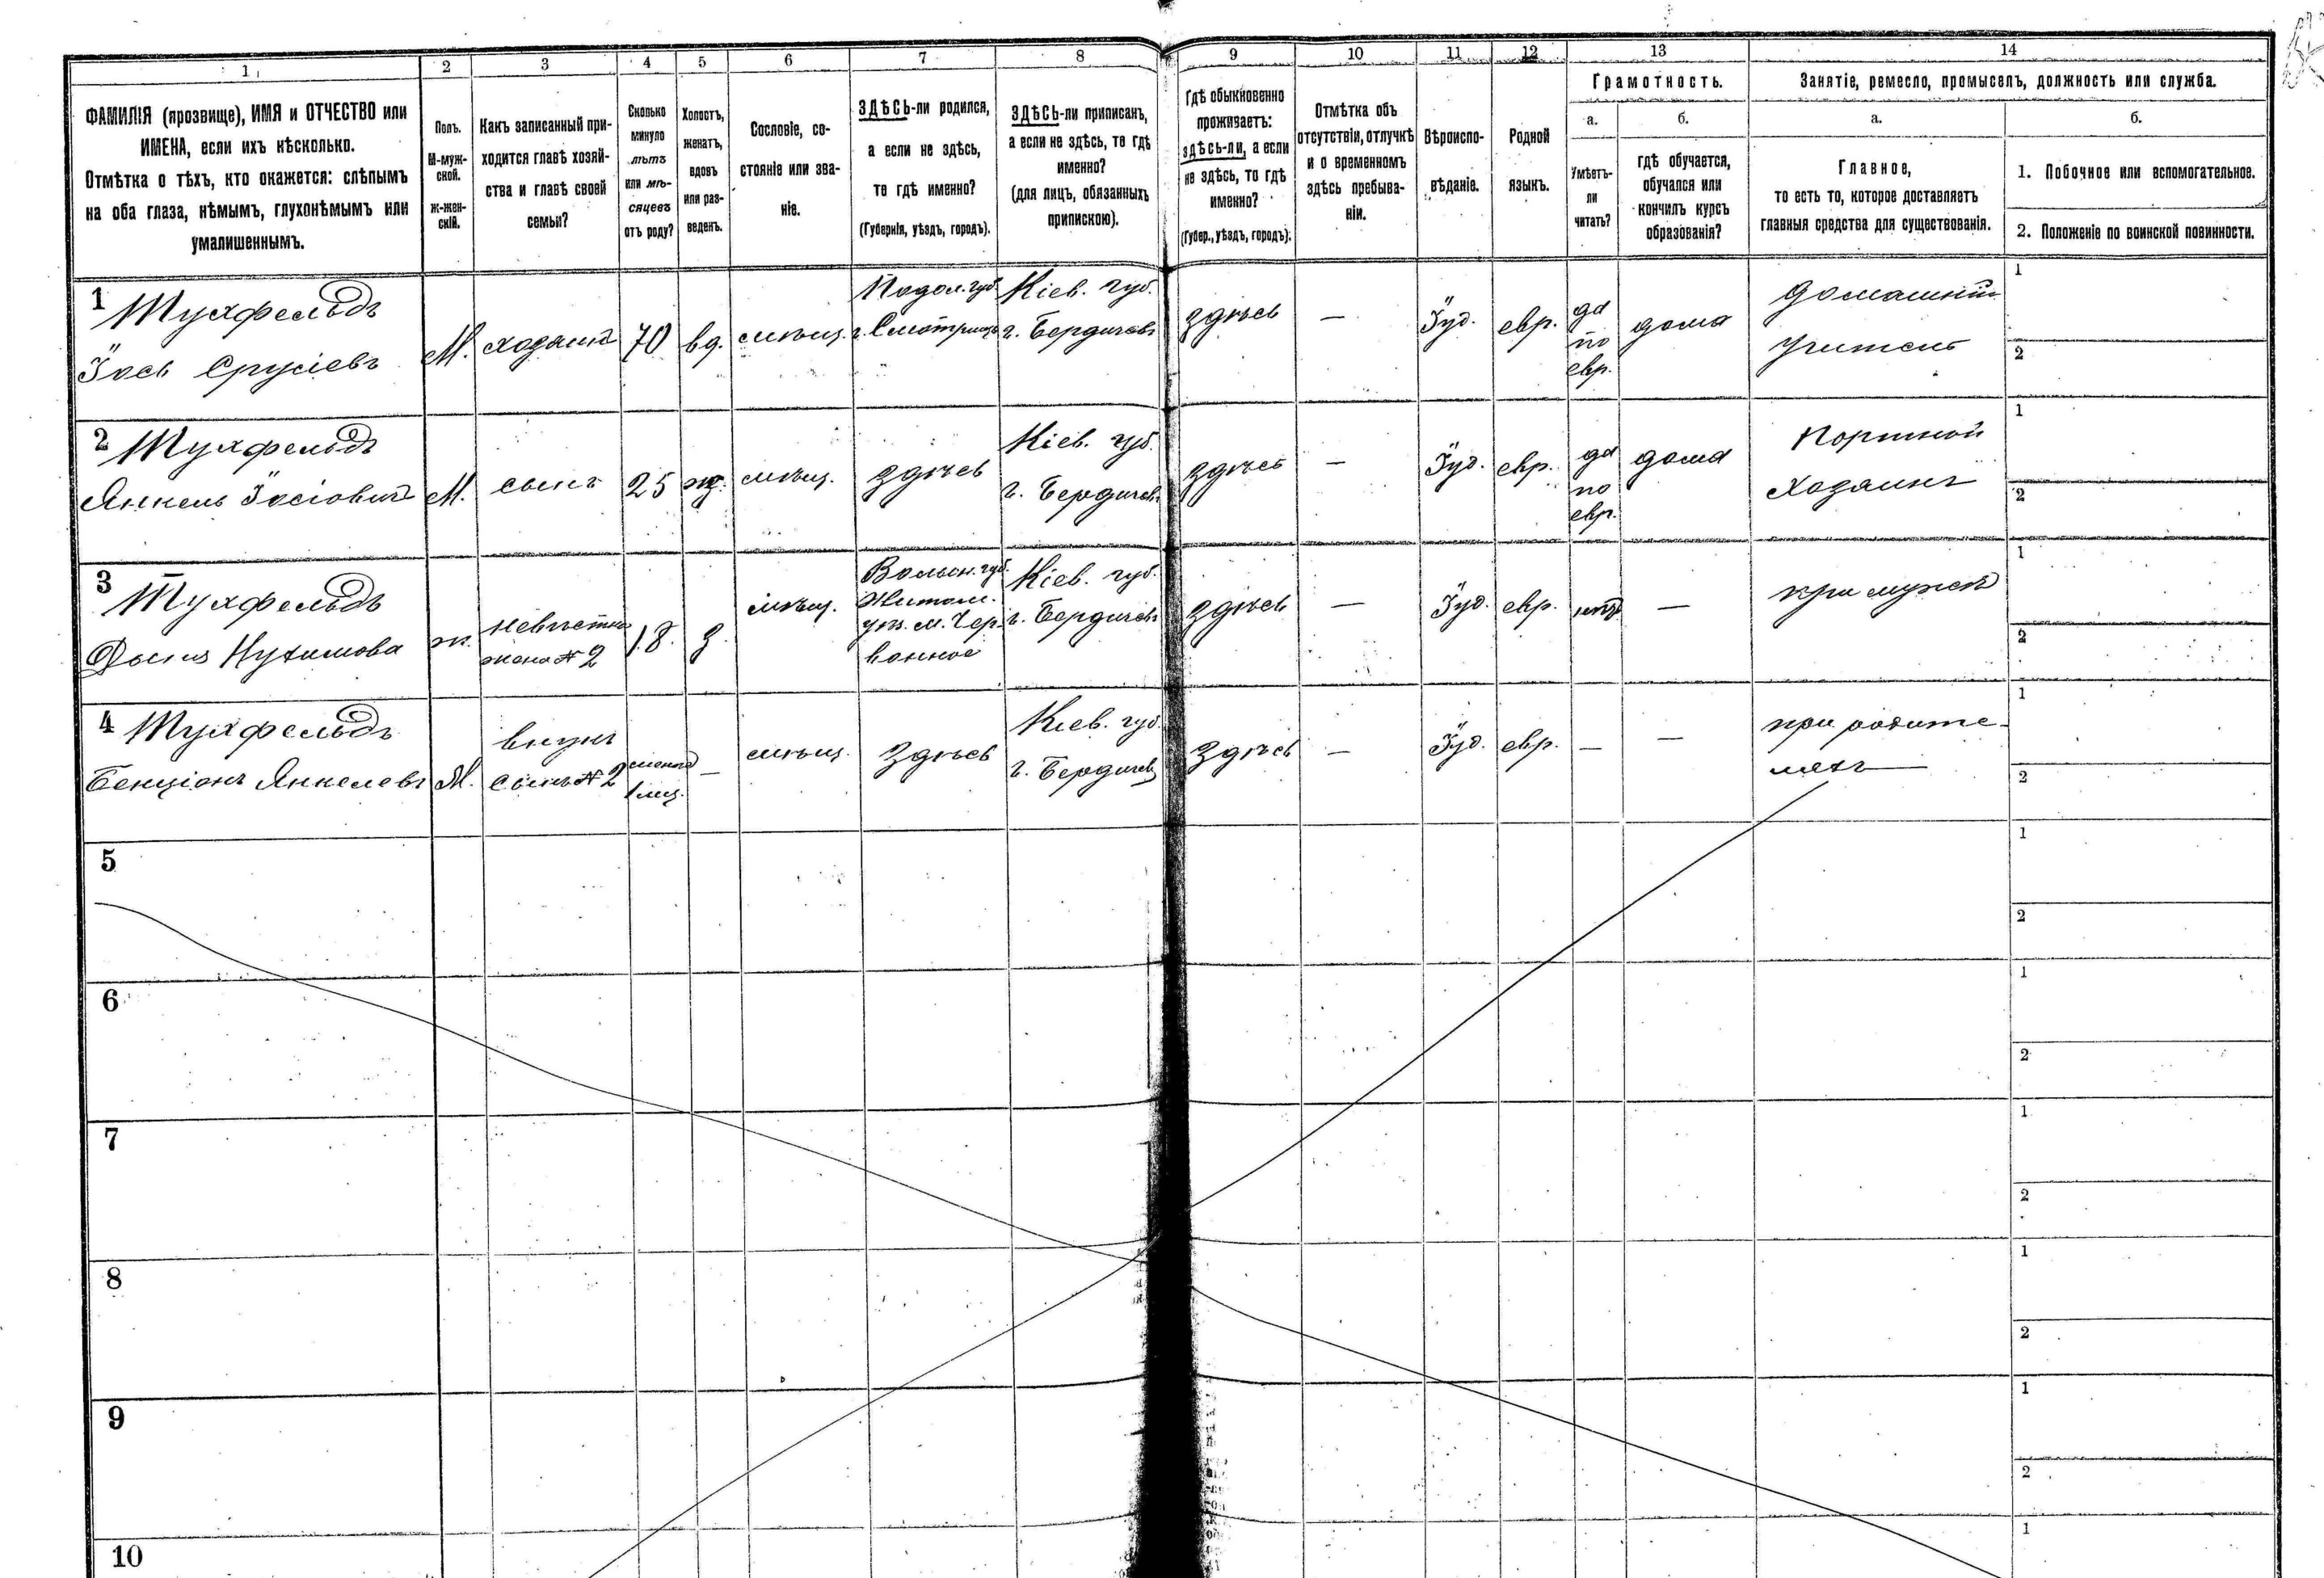 1
2
3
4
5
6
7
8
9
10
11
12
13
14
ФАМИЛІЯ (прозвище), ИМЯ и ОТЧЕСТВО или
ИМЕНА, если ихъ нѣсколько.
Отмѣтка о тѣхъ, кто окажется: слѣпымъ
на оба глаза, нѣмымъ, глухонѣмымъ или
умалишеннымъ.
Полъ.
М-муж-
ской.
ж-жен-
скій.
Какъ записанный при-
ходится главѣ хозяй-
ства и главѣ своей
семьи?
Сколько
минуло
лѣтъ
или мѣ-
сяцевъ
отъ роду?
Холостъ,
женатъ,
вдовъ
или раз-
веденъ.
Сословіе, со-
стояніе или зва-
ніе.
ЗДѢСЬ-ли родился,
а если не здѣсь,
то гдѣ именно?
(Губернія, уѣздъ, городъ).
ЗДѢСЬ-ли приписанъ,
а если не здѣсь, то гдѣ
именно?
(для лицъ, обязанныхъ
припискою).
Гдѣ обыкновенно
проживаетъ:
здѣсь-ли, а если
не здѣсь, то гдѣ
именно?
(Губер., уѣздъ, городъ).
Отмѣтка объ
отсутствіи, отлучкѣ
и о временномъ
здѣсь пребыва-
ніи.
Вѣроиспо-
вѣданіе.
Родной
языкъ.
Грамотность.
а.
Умѣетъ-
ли
читать?
б.
гдѣ обучается,
обучался или
кончилъ курсъ
образованія?
Занятіе, ремесло, промыселъ, должность или служба.
а.
Главное,
то есть то, которое доставляетъ
главныя средства для существованія.
б.
1. Побочное или вспомогательное.
2. Положеніе по воинской повинности.
1
Тухфельдъ
Іось Срулевъ
М.
хозяинъ
70
вд.
мѣщ.
Подол. губ.
г. Смотричъ
Кіев. губ.
г. Бердичевъ
здѣсь
—
Іуд.
евр.
да
по
евр.
дома
домашній
учитель
1
2
2
Тухфельдъ
Янкель Іосіовичъ
М.
сынъ
25
ж.
мѣщ.
здѣсь
Кіев. губ.
г. Бердичевъ
здѣсь
—
Іуд.
евр.
да
по
евр.
дома
Портной
Хозяинъ
1
2
3
Тухфельдъ
Нухимова
ж.
невѣстка
жена № 2
18.
з.
мѣщ.
Волын. губ.
Житом.
уѣз. м. Чер-
вонное
Кіев. губ.
г. Бердичевъ
здѣсь
—
Іуд.
евр.
нѣтъ
—
при мужѣ
1
2
4
Тухфельдъ
Бенціонъ Янкелевъ
М.
внукъ
сынъ № 2
менѣе
1 мѣс.
—
мѣщ.
здѣсь
Кіев. губ.
г. Бердичевъ
здѣсь
—
Іуд.
евр.
—
—
при родите-
ляхъ
1
2
5
1
2
6
1
2
7
1
2
8
1
2
9
1
2
10
1